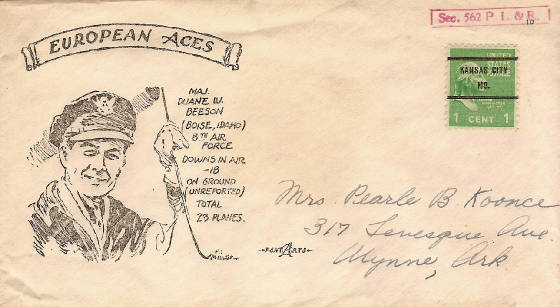 EUROPEAN ACES
Sec. 562 P. L. & R.
KANSAS CITY
MO.
1 CENT 1
MAJ.
DUANE W.
BEESON
(BOISE, IDAHO)
8TH AIR
FORCE
DOWNS IN AIR
-18
ON GROUND
(UNREPORTED)
TOTAL
23 PLANES.
PENT ARTS
Mrs. Pearle B Koonce
317 Levesque Ave.
Wynne, Ark.